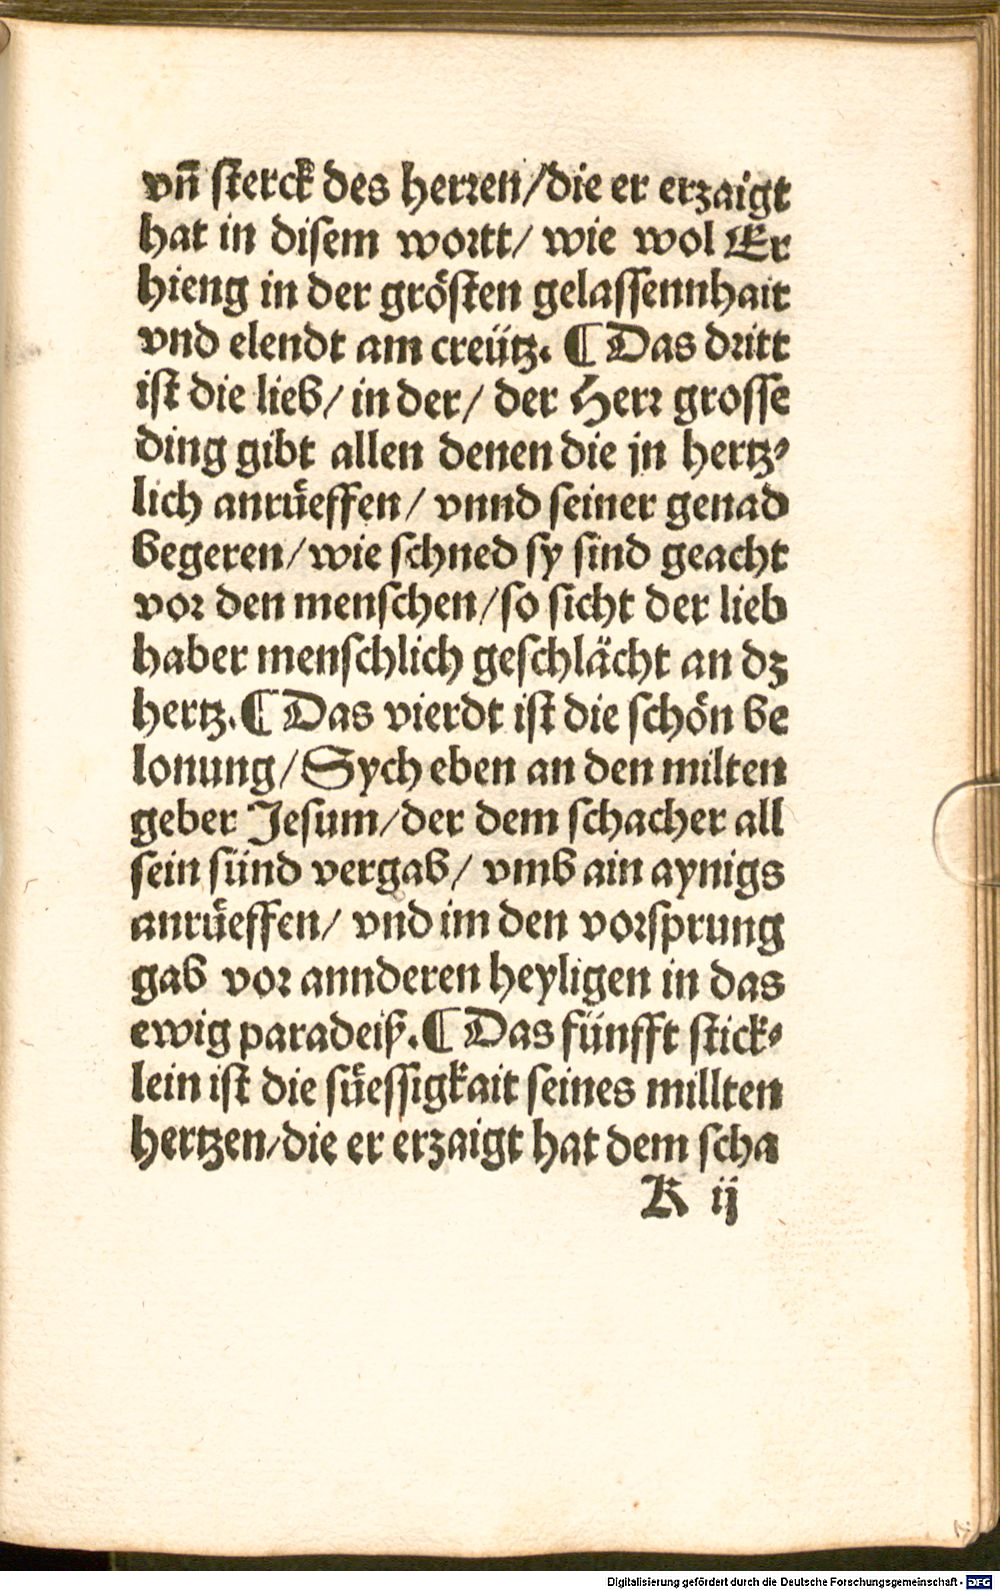 vn̄ sterck des herren/die er erzaigt
hat in disem wortt/ wie wol Er
hieng in der grösten gelassennhait
vnd elendt am creütz. ¶ Das dritt
ist die lieb/ in der/ der Herr grosse
ding gibt allen denen die jn hertz⸗
lich anrüeffen/ vnnd seiner genad
begeren/wie schned sy sind geacht
vor den menschen/so sicht der lieb
haber menschlich geschlächt an dz
hertz.¶ Das vierdt ist die schön be
lonung/Sych eben an den milten
geber Jesum/der dem schacher all
sein sünd vergab/ vmb ain aynigs
anrüeffen/ vnd im den vorsprung
gab vor annderen heyligen in das
ewig paradeiß.¶ Das fünfft stick⸗
lein ist die süessigkait seines millten
hertzen/die er erzaigt hat dem scha
K ij
Digitalisierung gefördert durch die Deutsche Forschungsgemeinschaft - DFG